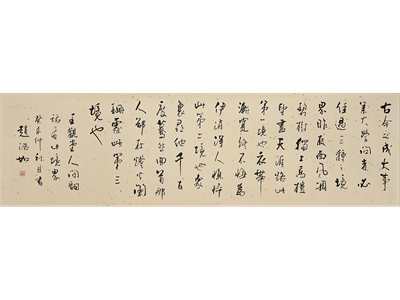 古今之成大事
業大學問者必
經過三種之境
界昨夜西風凋
碧樹獨上高樓
望盡天涯路此
第一境也衣帶
漸寬終不悔為
伊消得人憔悴
此第二境也衆
裏尋他千百
度驀然回首那
人却在燈火闌
珊處此第三
境也
王觀堂人間詞
話境界
癸未仲秋月書
趙浩如